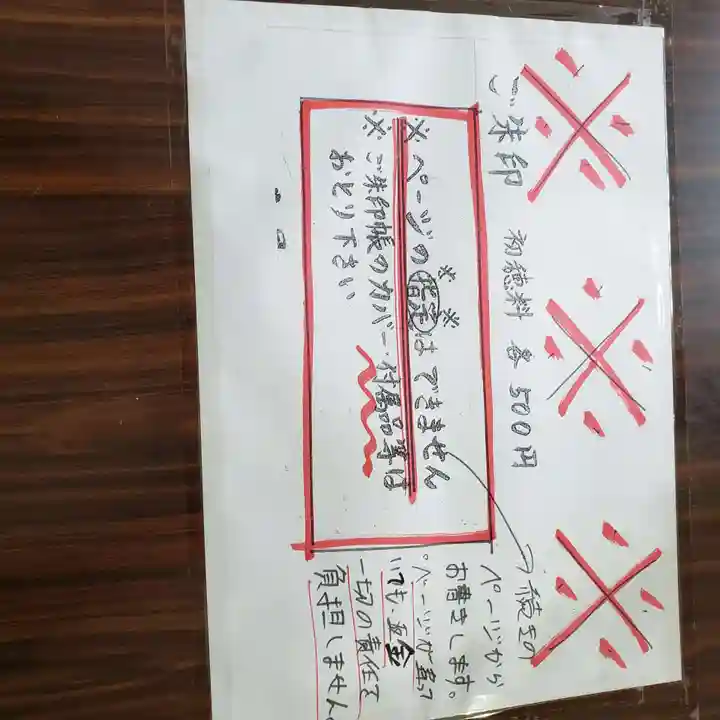 ※ ※ ※
ご朱印 初穂料 各500円
※ページの指定はできません
※ご朱印帳のカバー・付属品等は
おとり下さい
続きの
ページから
お書きします。
ページが
いても
一切の責任
負担しません。